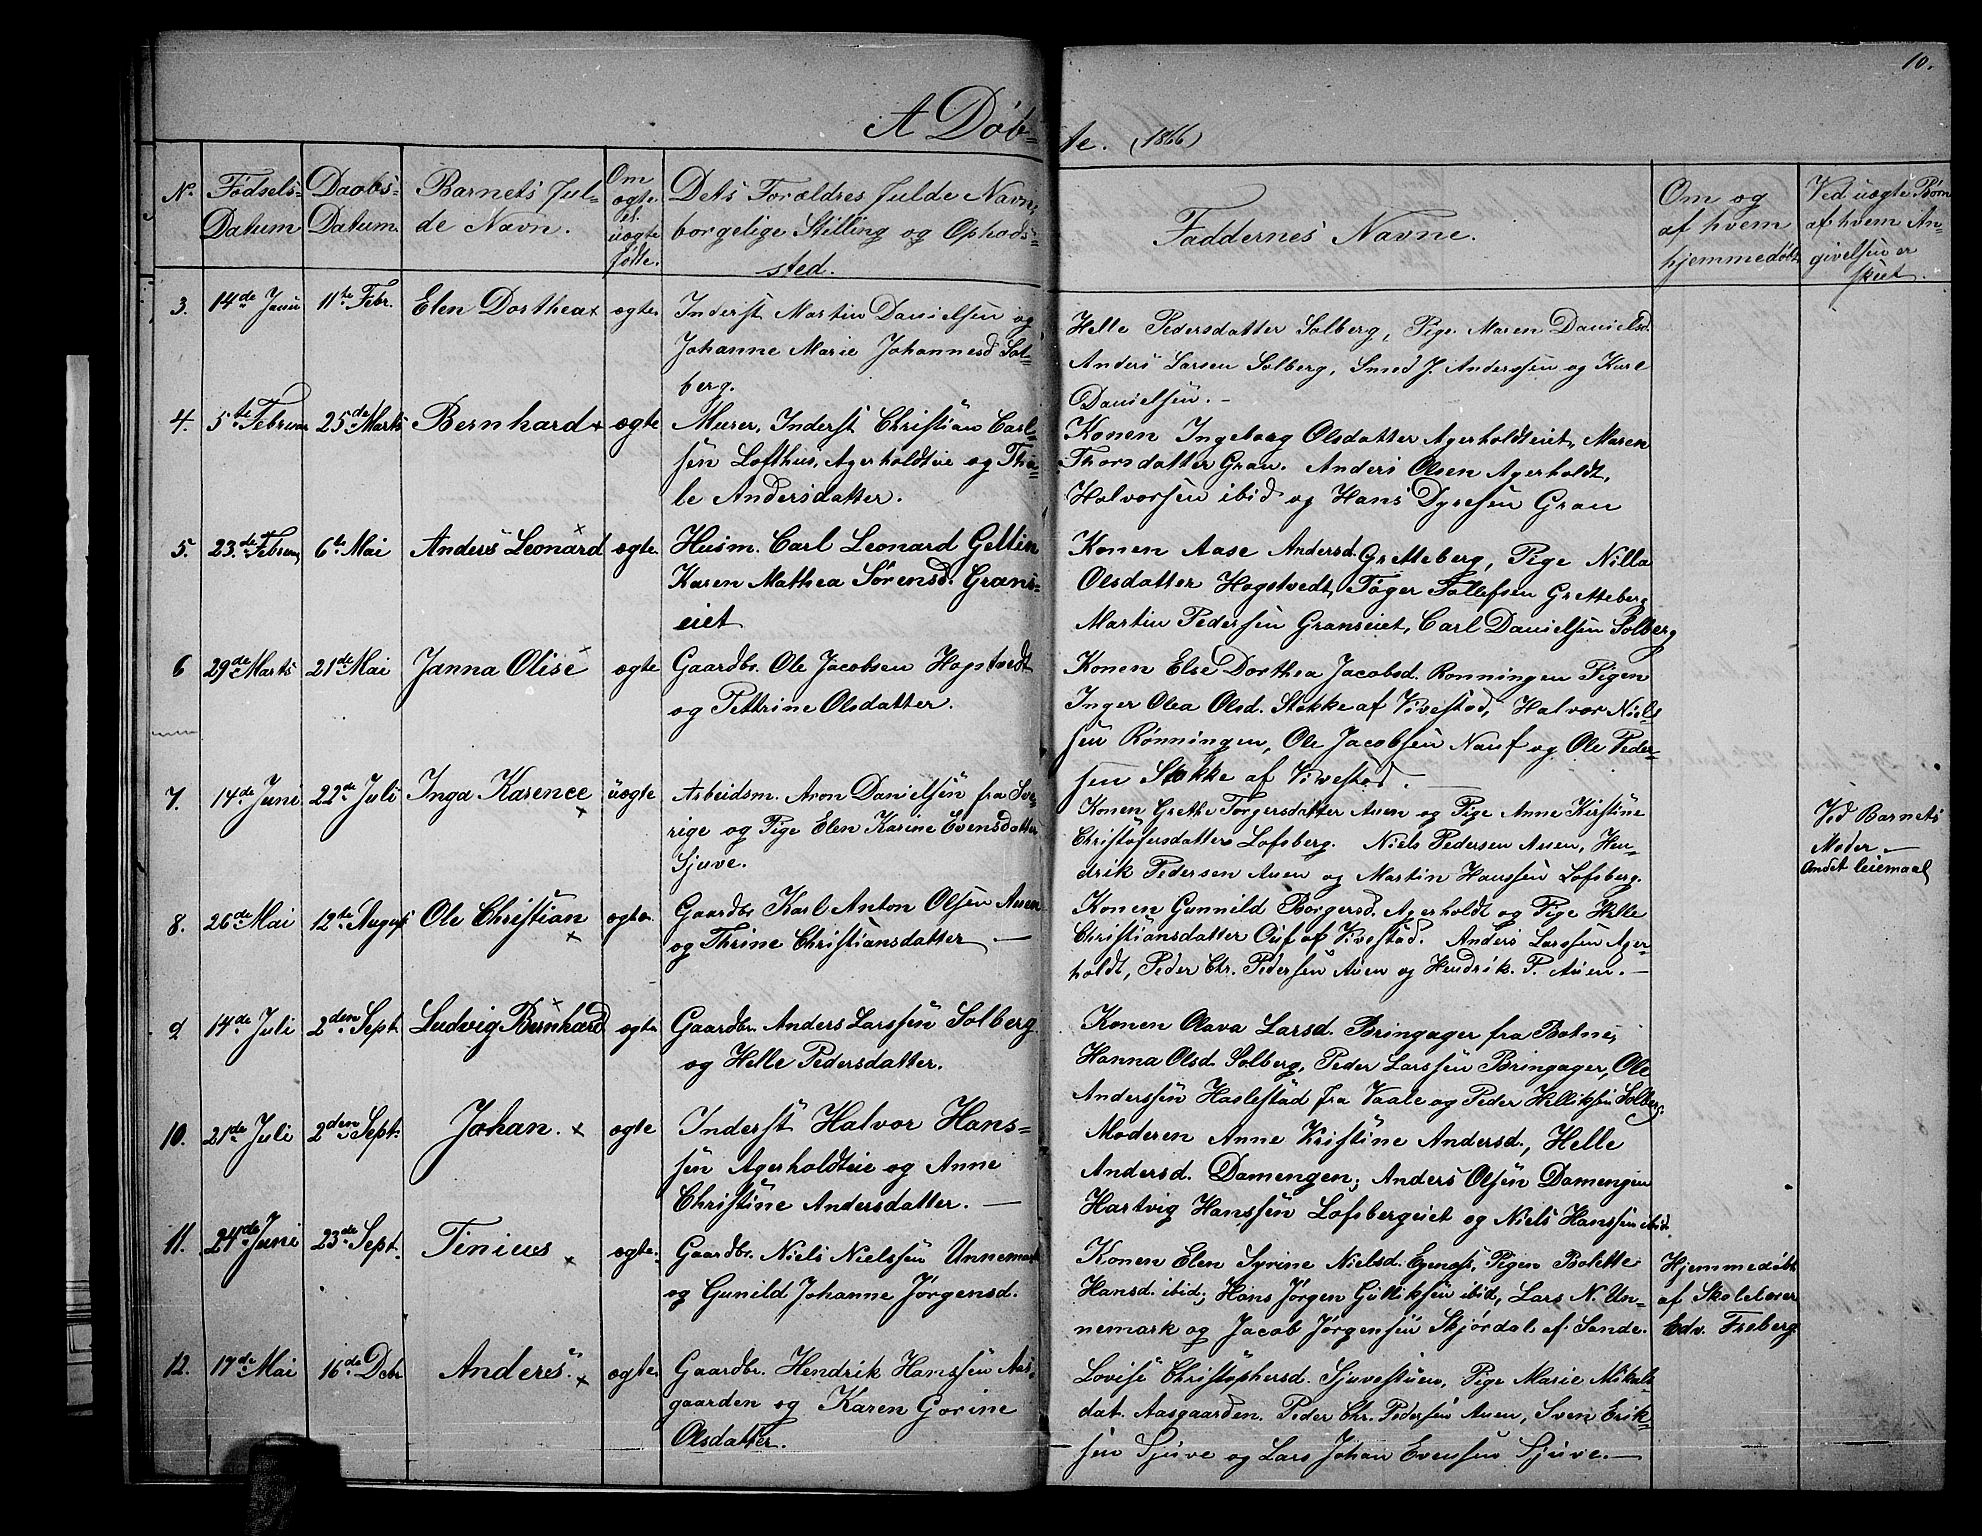 10.
A Døb-
te. (1866)
No. Fødsels- Datum
Daabs- Datum.
Barnets Ful- de Navn.
Om ægte el. uægte fødte.
Dets Forældres fulde Navn, borgelige Stilling og Ophods- sted.
Faddernes Navne.
Om og af hvem hjemmedøbt
Ved uægte Børn af hvem An- givelsen er skeet.
3. 14de Janu 11te Febr. Elen Dorthea x ægte.
Inderst Martin Danielsen og
Johanne Marie Johannesd Sol-
berg.
Helle Pedersdatter Solberg, Pige Maren Danielsd.
Anders Larsen Solberg, Smed J. Anderssen og Karl
Danielsen. -
4. 5te Februar 25de Marts Bernhard x ægte
Murer, Inderst Christian Carl-
sen Lofthus, Agerholdteie og Tha-
le Andersdatter.
Konen Ingeborg Olsdatter Agerholdteiet, Maren
Thorsdatter Gran. Anders Olsen Agerholdt,
Halvorsen ibid og Hans Dyresen Gran
5. 23de Februa 6te Mai Anders Leonard x ægte
Husm. Carl Leonard Gettin
Karen Mathea Sørensd. Grans-
eiet
Konen Aase Andersd. Gretteberg, Pige Nilla
Olsdatter Hogstvedt, Tøger Tollefsen Gretteberg
Martin Pedersen Granseiet, Carl Danielsen Solberg
6 29de Marts 21de Mai Janna Olise x ægte
Gaardbr. Ole Jacobsen Hogstvedt
og Pettrine Olsdatter.
Konen Else Dorthea Jacobsd. Ronningen Pigen
Inger Olea Olsd. Stokke af Vivestad, Halvor Niels
sen Rønningen, Ole Jacobsen Nauf og Ole Peder-
sen Stokke af Vivestad. -
7. 14de Juni 22de Juli Inga Karence x uægte
Arbeidsm. Aron Danielsen fra Sve-
rige og Pige Elen Karine Evensdatter
Sjuve.
Konen Grethe Torgersdatter Auen og Pige Anne Kirstine
Christofersdatter Lofsberg. Niels Pedersen Auen, Hen-
drik Pedersen Auen og Martin Hanssen Lofsberg.
Ved Barnets
Moder -
Andet leiemaal
8. 26de Mai 12te August Ole Christian x ægte.
Gaardbr Karl Anton Olsen Auen
og Thrine Christiansdatter -
Konen Gunnild Borgersd. Agerholdt og Pige Helle
Christiansdatter Ouf af Vivestad. Anders Larssen Ager-
holdt, Peder Chr. Pedersen Auen og Hendrik. P. Auen. -
9 14de Juli 2den Sept. Ludvig Bernhard x ægte
Gaardbr. Anders Larssen Solberg
og Helle Pedersdatter.
Konen Olava Larsd. Bringager fra Botne,
Hanna Olsd. Solberg, Peder Larssen Bringager, Ole
Anderssen Haslestad fra Vaale og Peder Helliksen Solberg.
10. 21de Juli 2den Sept. Johan. x ægte
Inderst Halvor Hans-
sen Agerholdteie og Anne
Christine Andersdatter. -
Moderen Anne Kristine Andersd., Helle
Andersd. Damengen, Anders Olsen Damengen
Hartvig Hanssen Lofsbergeiet og Niels Hanssen ibid.
11. 24de Juni 23de Sept. Tinius x ægte.
Gaardbr. Niels Nielssen Unnemark
og Gunild Johanne Jørgensd.
Konen Elen Syrine Nielsd. Pigen Bolette
Hansd. ibid; Hans Jørgen Gulliksen ibid, Lars N. Un-
nemark og Jacob Jørgensen Skjørdal af Sande.
Hjemmedøbt
af Skolelærer
Edv. Freberg.
12. 17de Mai 16de Debr Anderes. x ægte.
Gaardbr. Hendrik Hanssen Aas-
gaarden og Karen Gorine
Olsdatter.
Lovise Christophersd. Sjuvestuen, Pige Marie Mikels-
dat. Aasgaarden. Peder Chr. Pedersen Auen, Sven Erik-
sen Sjuve og Lars Johan Evensen Sjuve. -